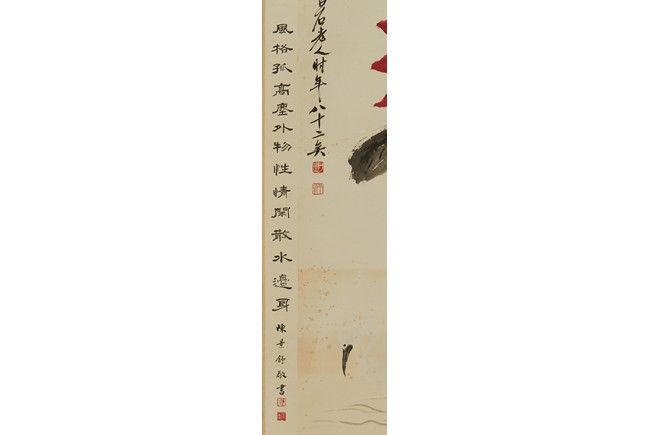 白石老人时年八十二矣
風格孤高塵外物性情閑散水邊身
陳景舒敬書